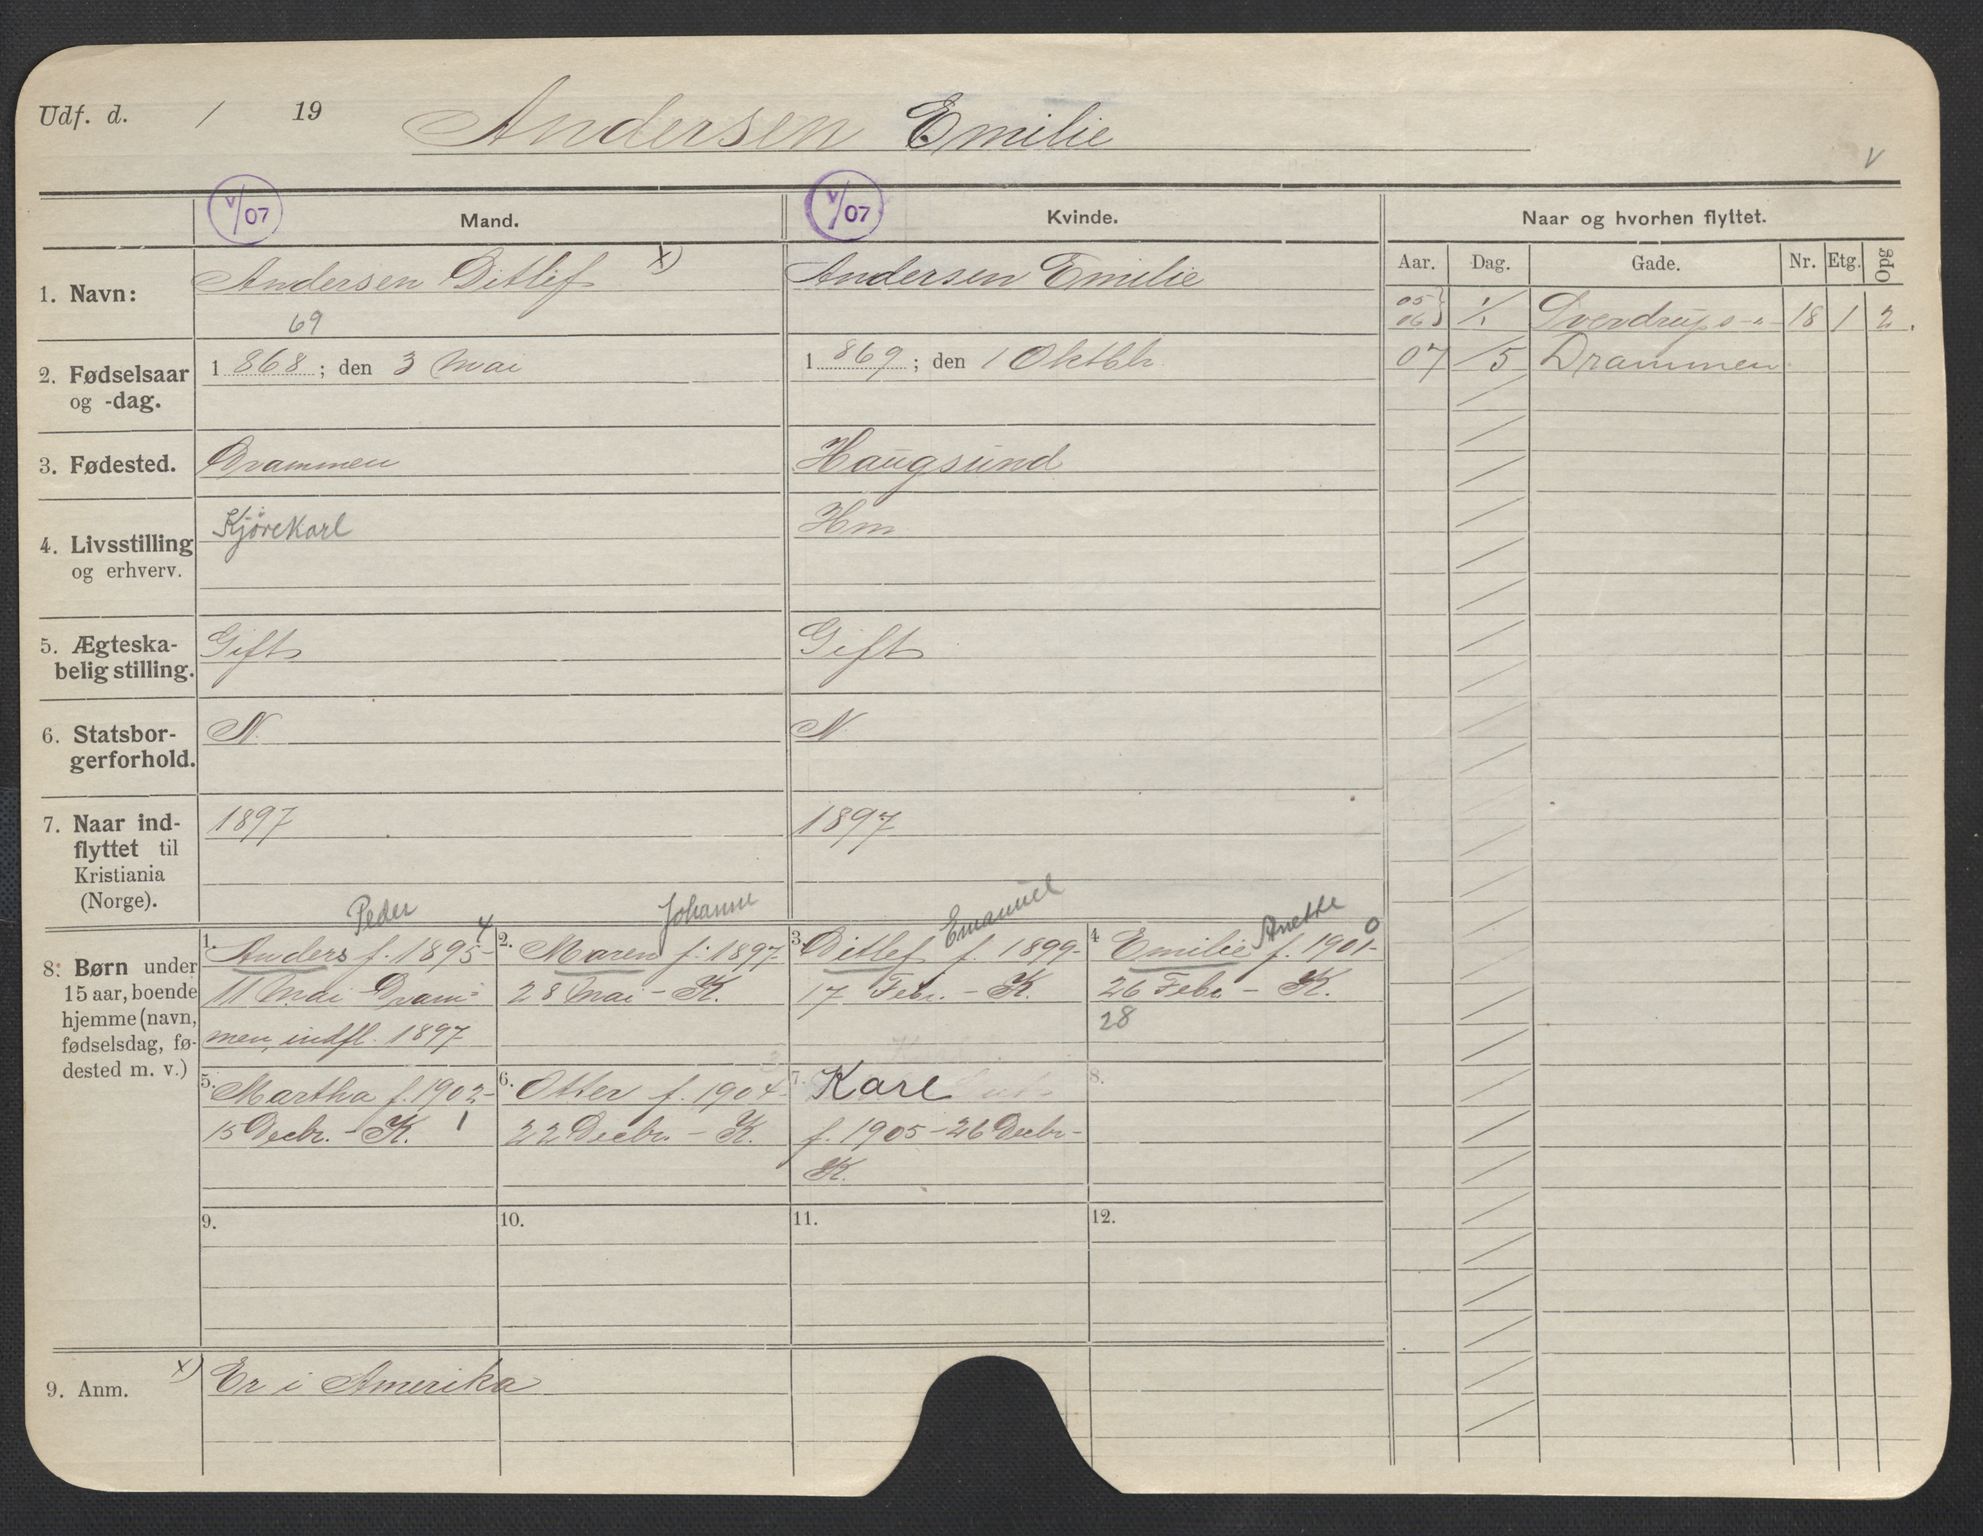 Udf. d. / 19 Andersen Emilie
V
V/07 Mand. V/07 Kvinde. Naar og hvorhen flyttet.
Aar. Dag. Gade. Nr. Etg. Opg
1. Navn: Andersen Ditlef x) Andersen Emilie
05 } 1/1 Sverdrups-" 18 1 2.
06
69
07 /5 Drammen
2. Fødselsaar og -dag. 1 868; den 3 Mai 1 869; den 1 Oktbr.
3. Fødested. Drammen Haugsund
4. Livsstilling og erhverv. Kjørekarl Hm
5. Ægteska-
belig stilling. Gift Gift
6. Statsbor-
gerforhold. N. N.
7. Naar ind-
flyttet til
Kristiania
(Norge). 1897 1897
8. Børn under
15 aar, boende
hjemme (navn,
fødselsdag, fø-
dested m. v.)
Peder 4
1. Anders f. 1895
11 Mai Dram-
men, indfl. 1897
Johanne
2. Maren f. 1897-
28 Mai - K.
Emanuel
3. Ditlef f. 1899-
17 Febr. - K.
Anette 0
4 Emilie f. 1901-
26 Febr. - K.
28
5. Martha f. 1902-
15 Decbr. - K. 1
6. Otter f. 1904-
22 Decbr. - K.
7. Karl
f. 1905 - 26 Decbr-
K.
8.
9. 10. 11. 12.
9. Anm. x) Er i Amerika